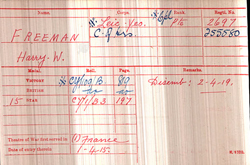 Name. Corps. Rank. Regtl. No.
FREEMAN * Leic. Yeo. Pte 2697
C. of Hrs. 255580
Harry W.
Medal. Roll. Page.
Victory
British
15 Star 197
Disemb: 2-4-19.
Theatre of War first served in (1) France
Date of entry therein 1-4-15.